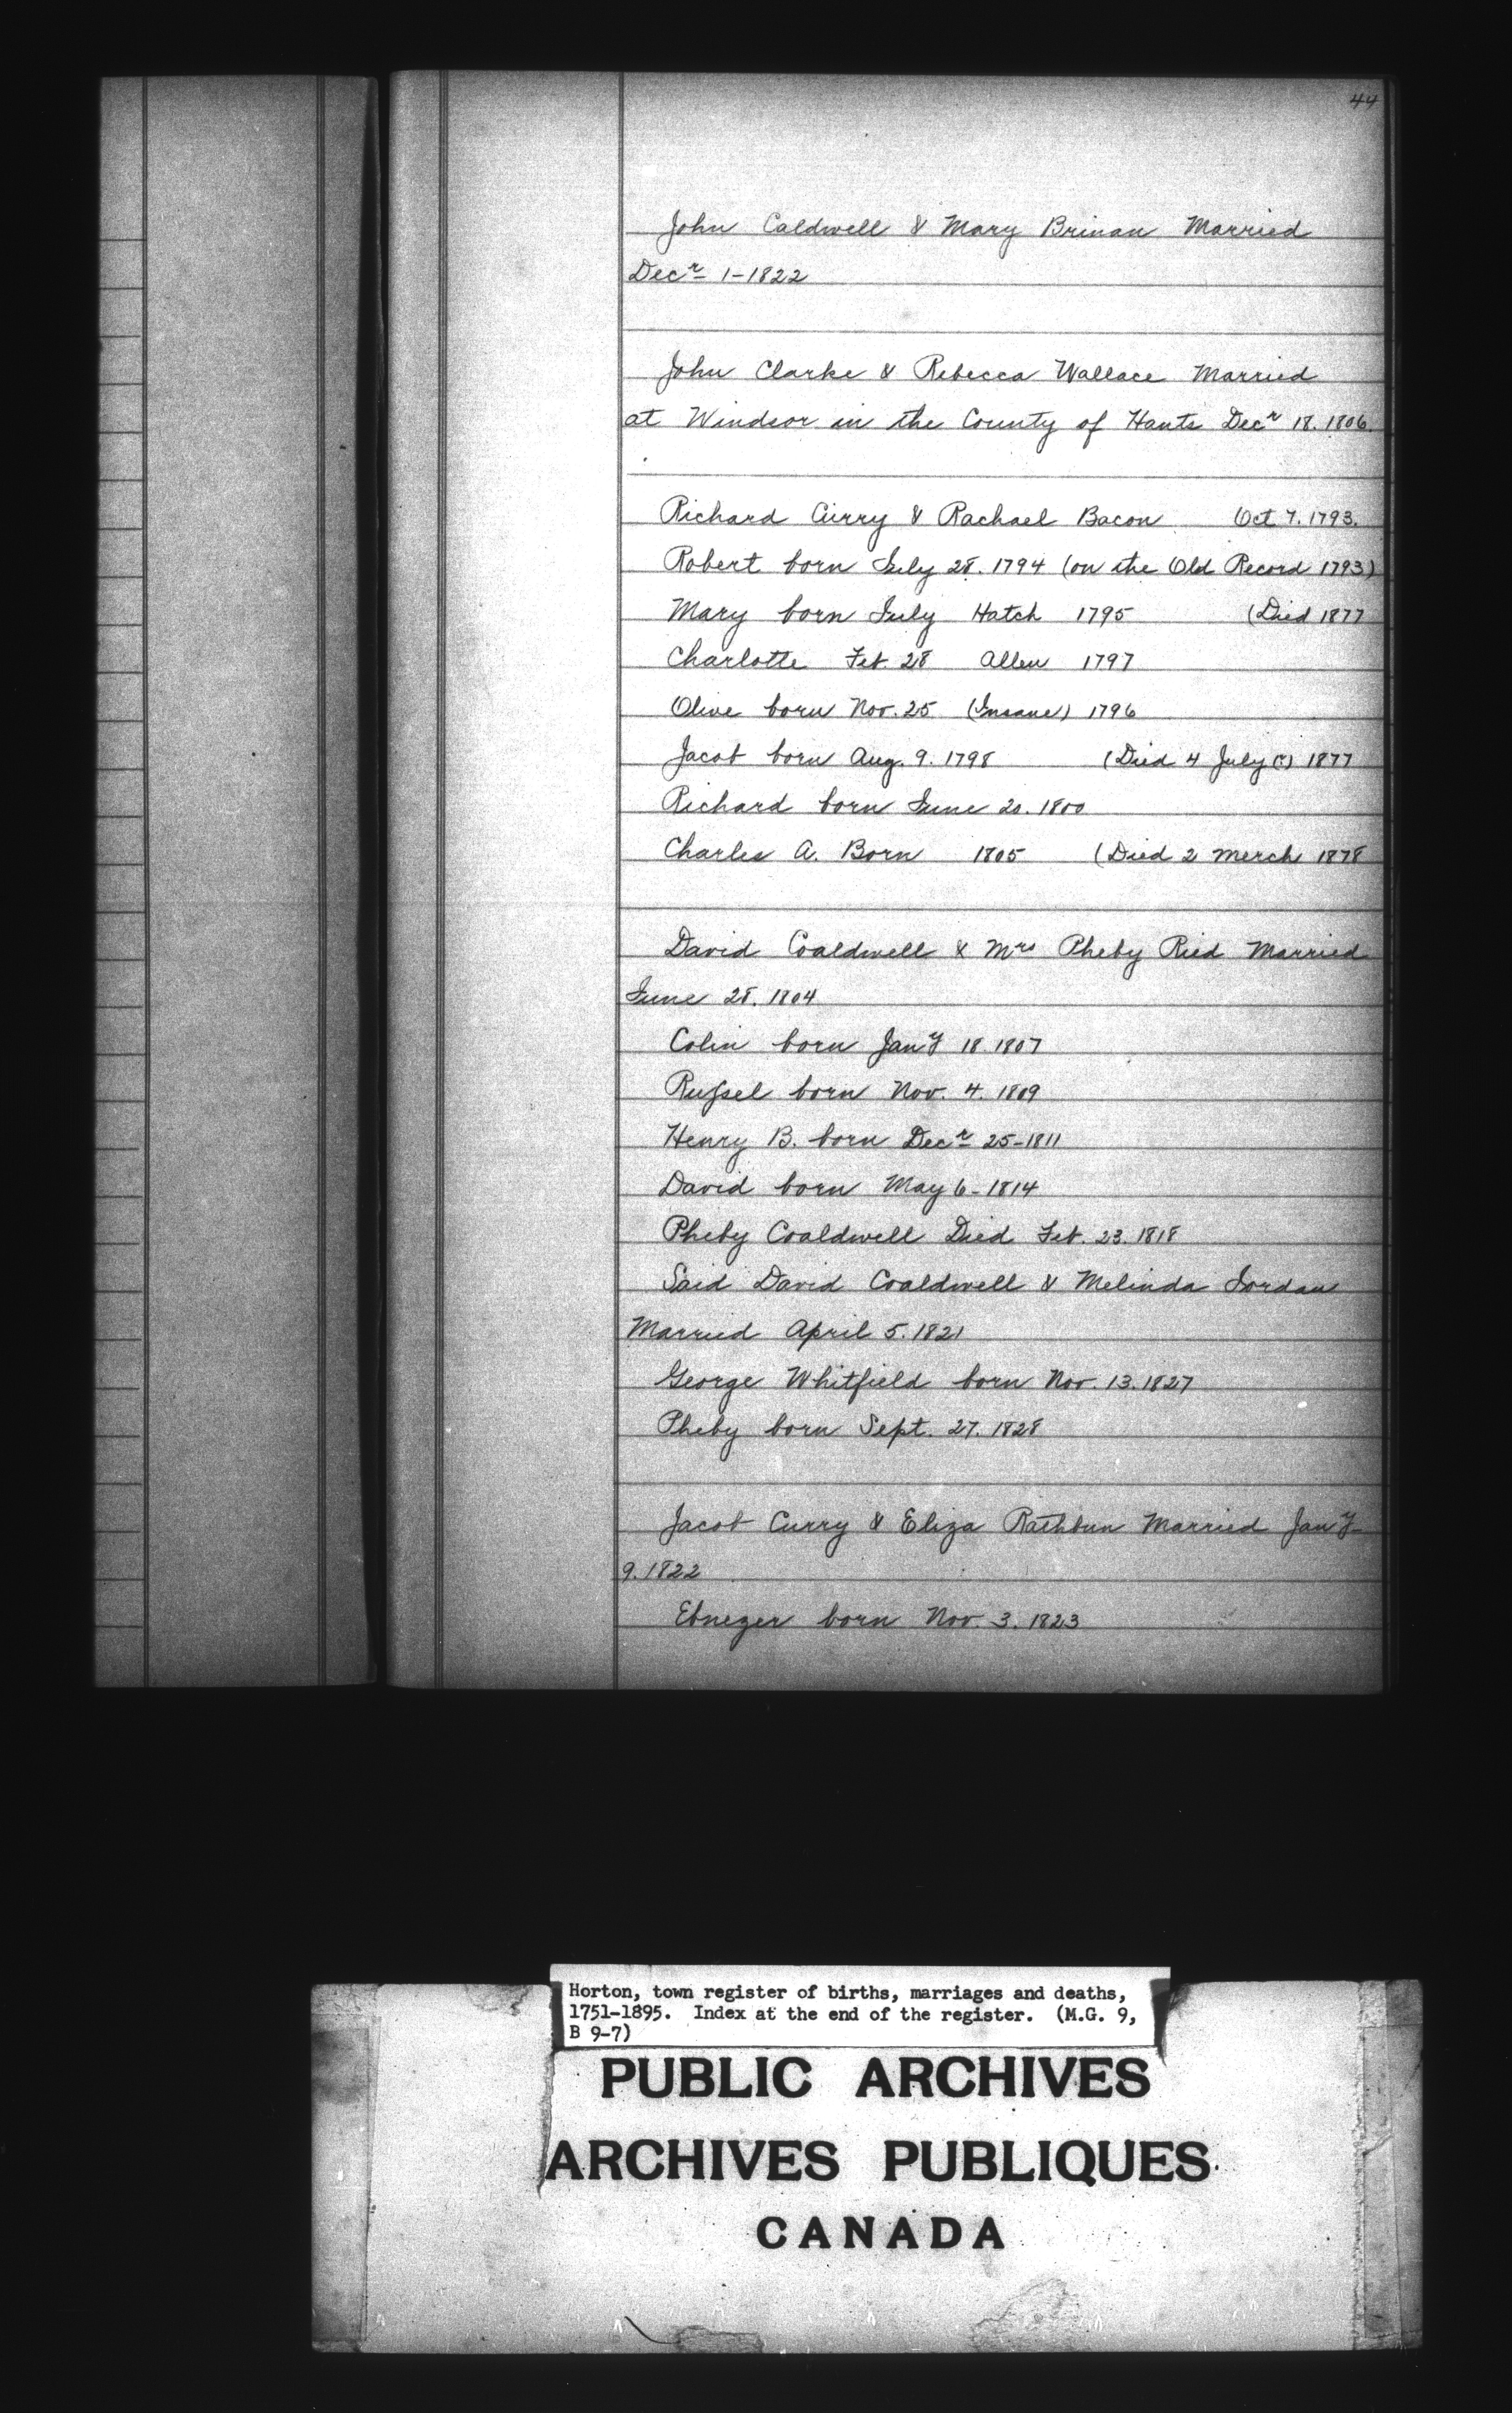 44
John Caldwell & Mary Brinan Married
Decr 1-1822
John Clarke & Rebecca Wallace Married
at Windsor in the County of Hants Decr 18. 1806.
Richard Curry & Rachael Bacon Oct 7. 1793.
Robert born July 28. 1794 (on the Old Record 1793)
Mary born July Hatch 1795 (Died 1877
Charlotte Feb. 28 Allen 1797
Olive born Nov. 25 (Insane) 1796
Jacob born Aug. 9. 1798 (Died 4 July (?) 1877
Richard born June 20. 1800
Charles A. Born 1805 (Died 2 March 1878
David Coaldwell & Mrs Pheby Ried Married
June 28. 1804
Colin born Jany 18. 1807
Russel born Nov. 4. 1809
Henry B. born Decr 25-1811
David born May 6-1814
Pheby Coaldwell Died Feb. 23. 1818
Said David Coaldwell & Melinda Jordan
Married April 5. 1821
George Whitfield born Nov. 13. 1827
Pheby born Sept. 27. 1828
Jacob Curry & Eliza Rathbun Married Jany
9. 1822
Ebnezer born Nov. 3. 1823
Horton, town register of births, marriages and deaths,
1751-1895. Index at the end of the register. (M.G. 9,
B 9-7)
PUBLIC ARCHIVES
ARCHIVES PUBLIQUES
CANADA